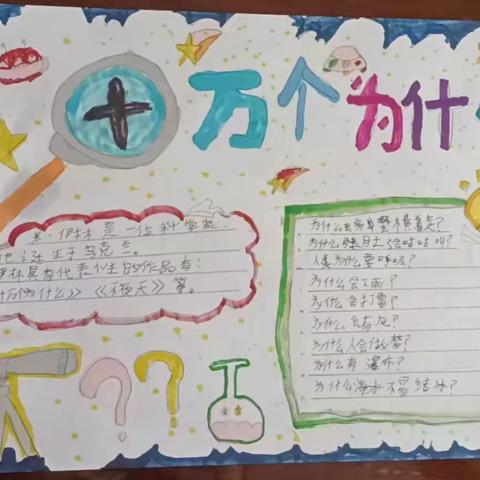 十万个为什
米·伊林是一位科学家.
他诞生于乌克兰。
伊林具有代表性的作品有:
十万个为什么》《不夜天》等。
为什么会
为什么肚子会咕咕叫?
人类为什么要呼吸?
为什么会下雨?
为什么会打雷?
为什么会着凡?
为什么人会做梦?
为什么有瀑布?
为什么海水不易结冰?
? ?